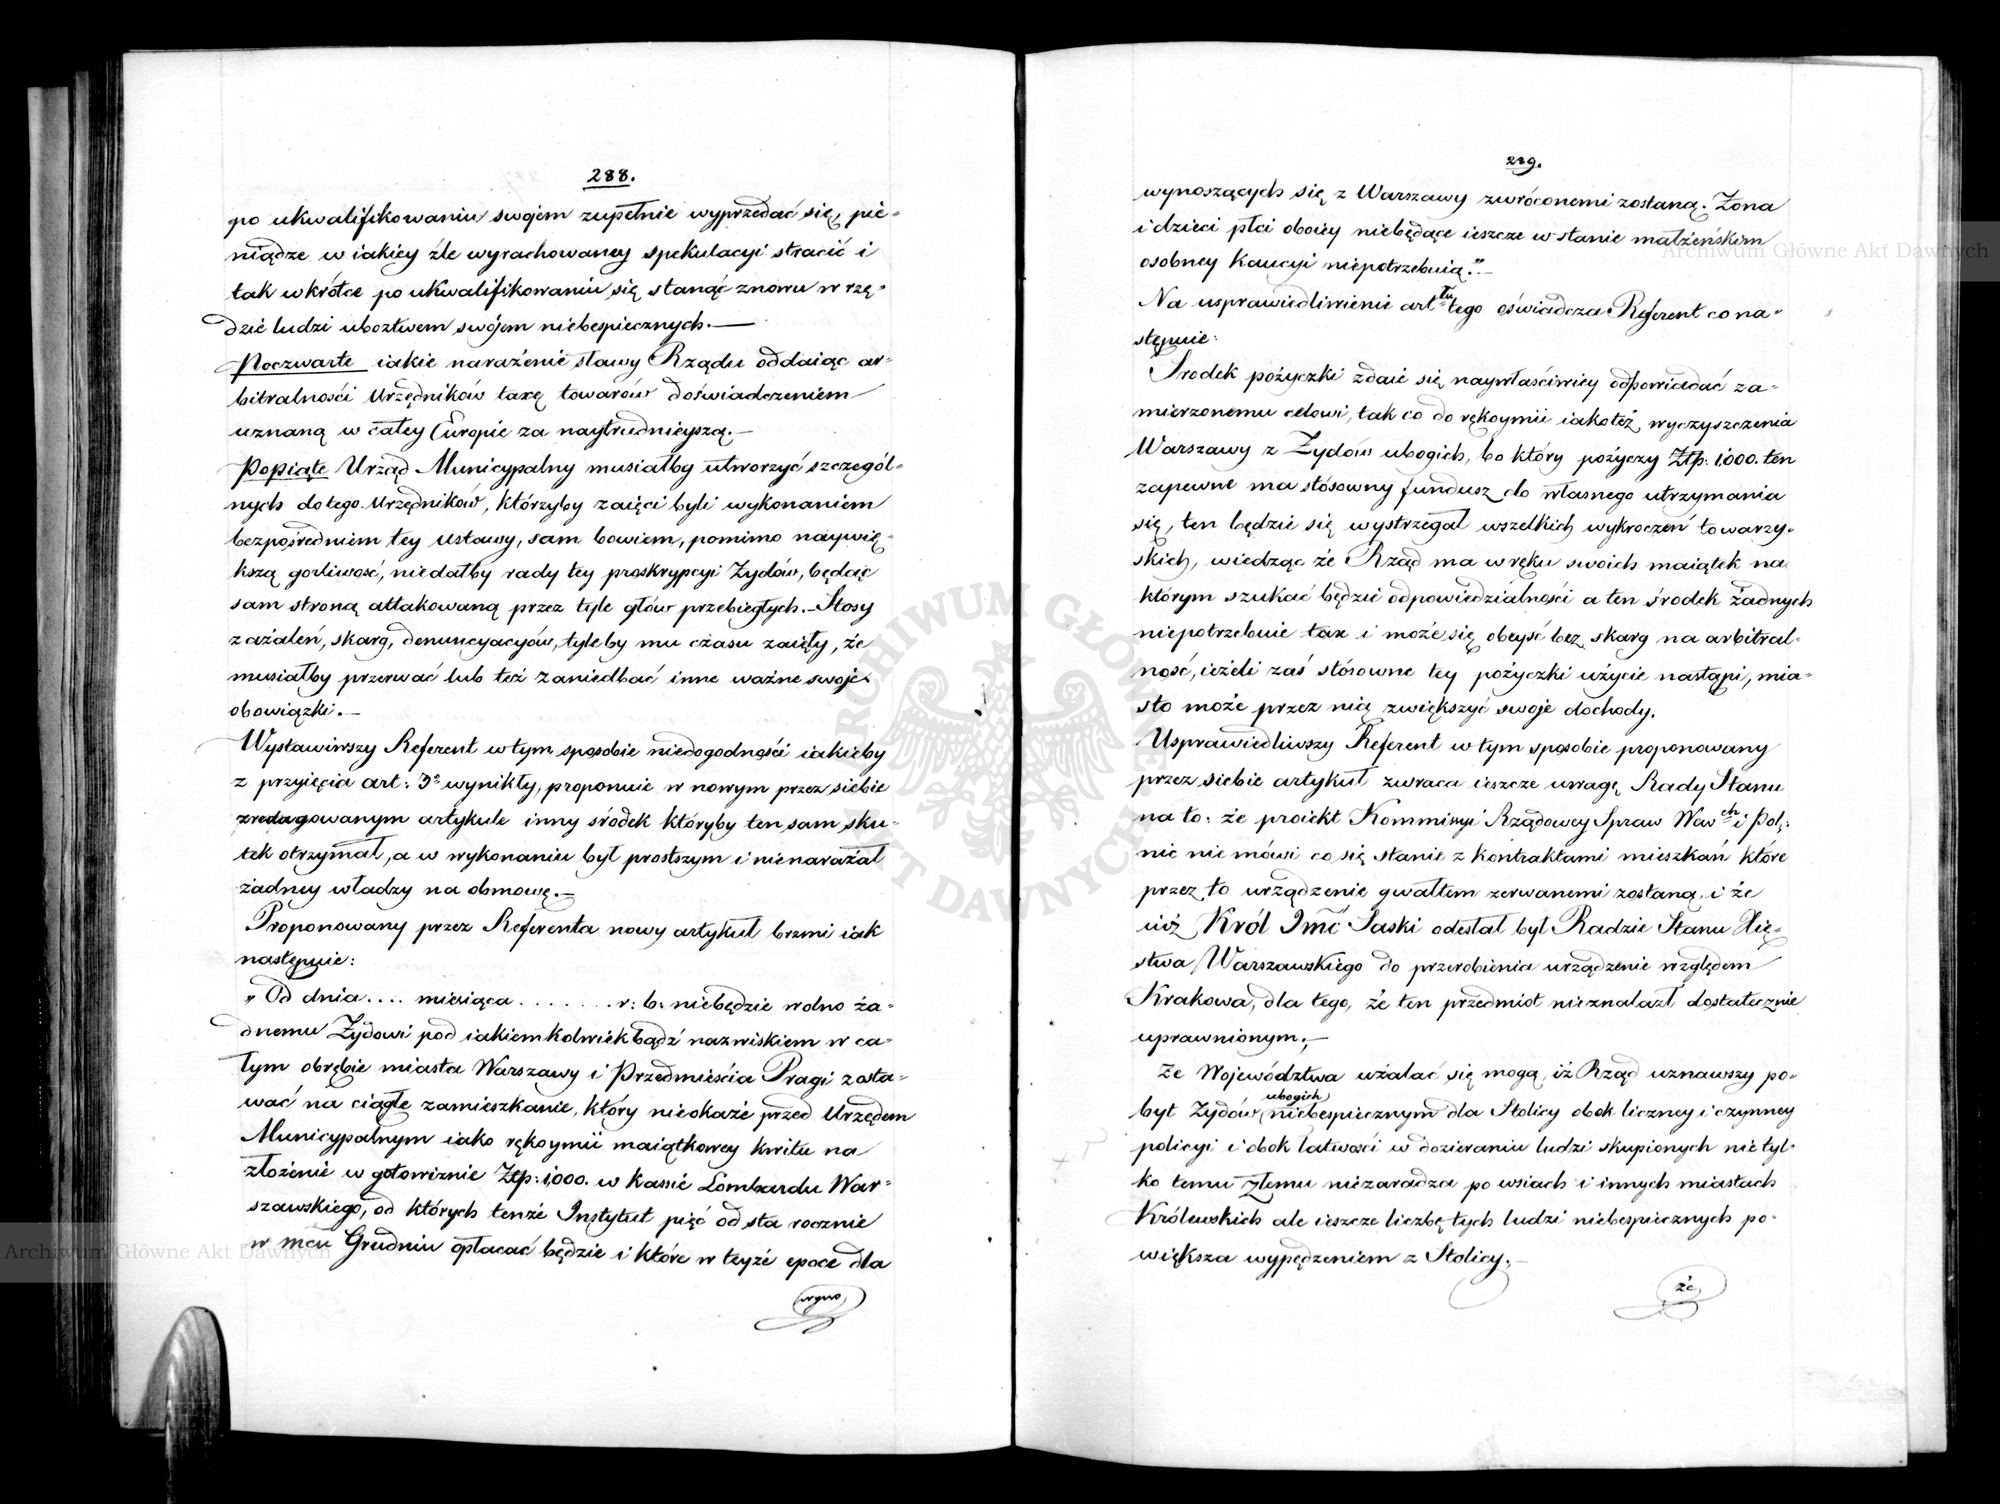 288.
po ukwalifikowaniu swojem zupełnie wyprzedać się, pie-
niądze w iakiéy źle wyrachowaney spekulacyi stracić i
tak wkrótce po ukwalifikowaniu się stanąć znowu w rzę-
dzie ludzi ubóztwem swojem niebespiecznych.—
Poczwarte iakie narażenie sławy Rządu oddaiąc ar-
bitralności Urzędników taxę towarów doświadczeniem
uznaną w całey Europie za naytrudnieyszą.—
Popiąte Urząd Municypalny musiałby utworzyć szczegól-
nych do tego Urzędników, którzyby zaięci byli wykonaniem
bezpośredniem tey ustawy, sam bowiem, pomimo naywię-
kszą gorliwość, niedałby rady tey proskrypcyi Żydów, będąc
sam stroną attakowaną przez tyle głów przebiegłych.—Stosy
zażaleń, skarg, denuncyacyów, tyleby mu czasu zaięły, że
musiałby przerwać lub też zaniedbać inne ważne swoje
obowiązki.—
Wystawiwszy Referent w tym sposobie niedogodności iakieby
z przyięcia art: 3º wynikły, proponuie w nowym przez siebie
zredagowanym artykule inny środek któryby ten sam sku-
tek otrzymał, a w wykonaniu był prostszym i nienarażał
żadney władzy na obmowę.—
Proponowany przez Referenta nowy artykuł brzmi iak
następuie:
„Od dnia .... miesiąca ........ r: b: niebędzie wolno ża-
dnemu Żydowi pod iakiemkolwiekbądź nazwiskiem w ca-
łym obrębie miasta Warszawy i Przedmieścia Pragi zosta-
wać na ciągłe zamieszkanie, który nieokaże przed Urzędem
Municypalnym iako rękoymii maiątkowey kwitu na
złożenie w gotowiznie Złp: 1,000. w kassie Lombardu War-
szawskiego, od których tenże Instytut pięć od sta rocznie
w mcu Grudniu opłacać będzie i które w teyże epoce dla
wyno
289.
wynoszących się z Warszawy zwróconemi zostaną. Żona
i dzieci płci oboiéy niebędące ieszcze w stanie małżeńskim
osobney Kaucyi niepotrzebuią."—
Na usprawiedliwienie arttu tego oświadcza Referent co na-
stępuie:
Srodek pożyczki zdaie się naywłaściwiéy odpowiadać za-
mierzonemu celowi, tak co do rękoymii iakoteż wyczyszczenia
Warszawy z Żydów ubogich, bo który pożyczy Złp: 1,000. ten
zapewne ma stósowny fundusz do własnego utrzymania
się, ten będzie się wystrzegał wszelkich wykroczeń towarzy-
skich, wiedząc że Rząd ma w ręku swoich maiątek na
którym szukać będzie odpowiedzialności a ten środek żadnych
niepotrzebuie tax i może się obeyść bez skarg na arbitral-
ność, ieżeli zaś stósowne tey pożyczki użycie nastąpi, mia-
sto może przez nię zwiększyć swoje dochody.
Usprawiedliwszy Referent w tym sposobie proponowany
przez siebie artykuł zwraca ieszcze uwagę Rady Stanu
na to: że proiekt Kommissyi Rządowey Spraw Wewch i Pol:
nic nie mówi co się stanie z kontraktami mieszkań które
przez to urządzenie gwałtem zerwanemi zostaną, i że
iuż Król Imć Saski odesłał był Radzie Stanu Xię-
stwa Warszawskiego do przerobienia urządzenie względem
Krakowa, dla tego, że ten przedmiot nieznalazł dostatecznie
uprawnionym.—
Że Województwa użalać się mogą, iż Rząd uznawszy po-
byt Żydów ubogich niebespiecznym dla Stolicy obok liczney i czynney
policyi i obok łatwości w dozieraniu ludzi skupionych nietyl-
ko temu złemu niezaradza po wsiach i innych miastach
Królewskich ale ieszcze liczbę tych ludzi niebespiecznych po-
większa wypędzeniem z Stolicy.—
że
ARCHIWUM GŁÓWNE AKT DAWNYCH
Archiwum Główne Akt Dawnych
Archiwum Główne Akt Dawnych